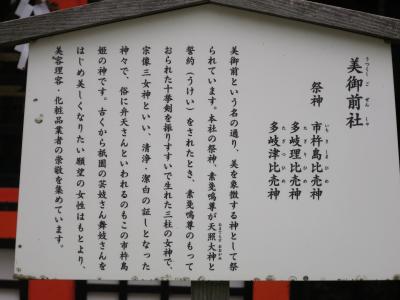 美御前社
うつくしごぜんしゃ
祭神 市杵島比売神
いちきしまひめ
多岐理比売神
たぎりひめ
多岐津比売神
たぎつひめ
美御前という名の通り、美を象徴する神として祭
られています。本社の祭神、素戔嗚尊が天照大神と
誓約(うけい)をされたとき、素戔嗚尊のもって
おられた十拳剣を振りすすいで生れた三柱の女神で、
宗像三女神といい、清浄・潔白の証しとなった
神々で、俗に弁天さんといわれるのもこの市杵島
姫の神です。古くから祇園の芸妓さん舞妓さんを
はじめ美しくなりたい願望の女性はもとより、
美容理容・化粧品業者の崇敬を集めています。